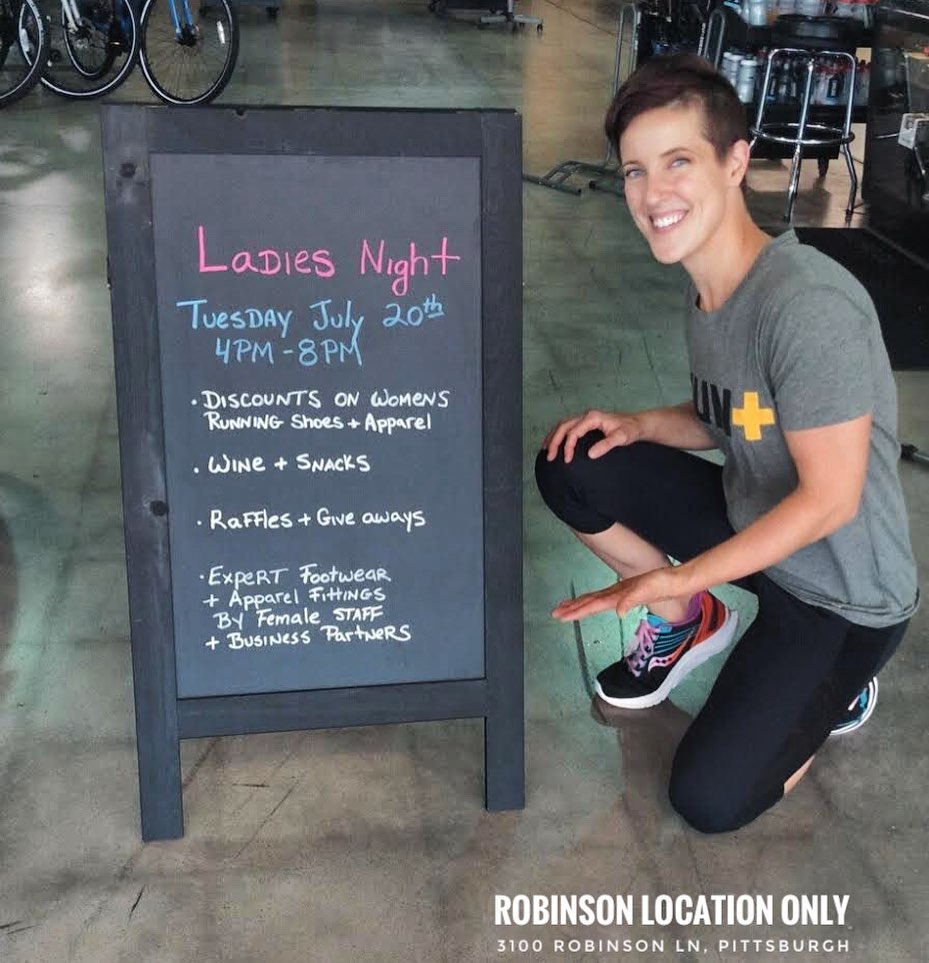 Ladies Night
Tuesday July 20th
4PM - 8PM
• Discounts on Womens
Running Shoes + Apparel
• Wine + Snacks
• Raffles + Give aways
• Expert Footwear
+ Apparel Fittings
By Female Staff
+ Business Partners
UN+
ROBINSON LOCATION ONLY
3100 ROBINSON LN, PITTSBURGH